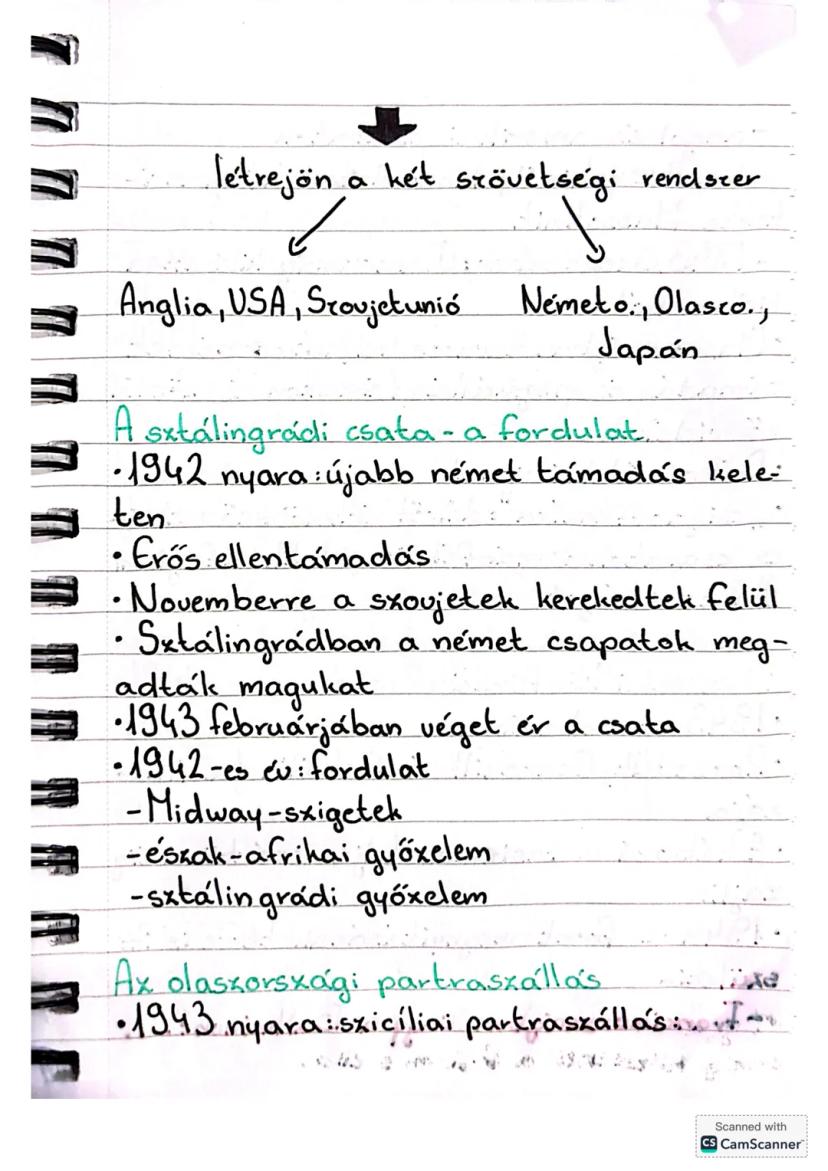 létrejön a két szövetségi rendszer
Anglia, USA, Szovjetunió Németo., Olaszo.,
Japán
A sztálingrádi csata - a fordulat
•1942 nyara: újabb német támadás kele-
ten
• Erős ellentámadás
• Novemberre a szovjetek kerekedtek felül
• Sztálingrádban a német csapatok meg-
adták magukat
•1943 februárjában véget ér a csata
•1942-es év: fordulat
-Midway-szigetek
-észak-afrikai győzelem
-sztálingrádi győzelem
Az olaszországi partraszállás
•1943 nyara: szicíliai partraszállás:
Scanned with
CS CamScanner